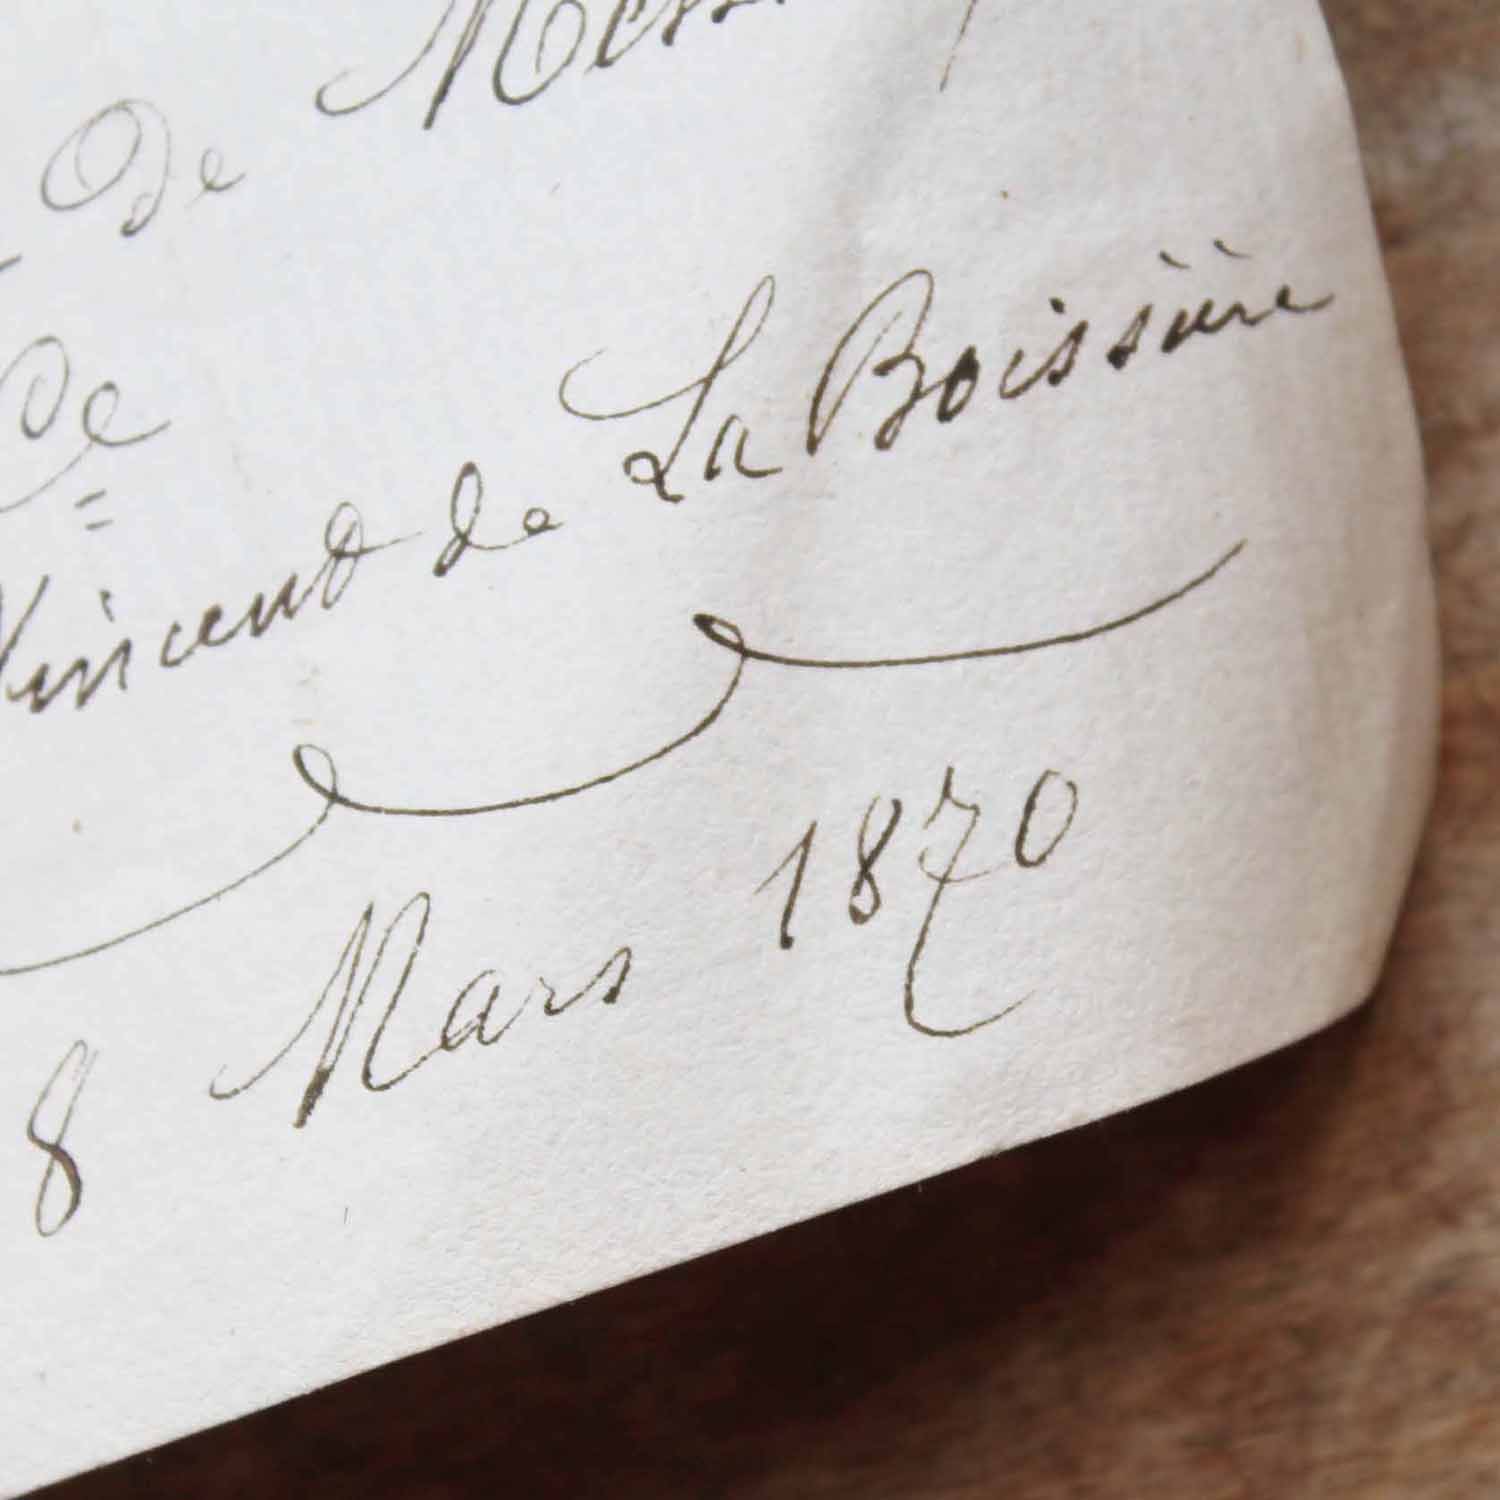 De
De
Vincent de La Boissière
8 Mars 1870